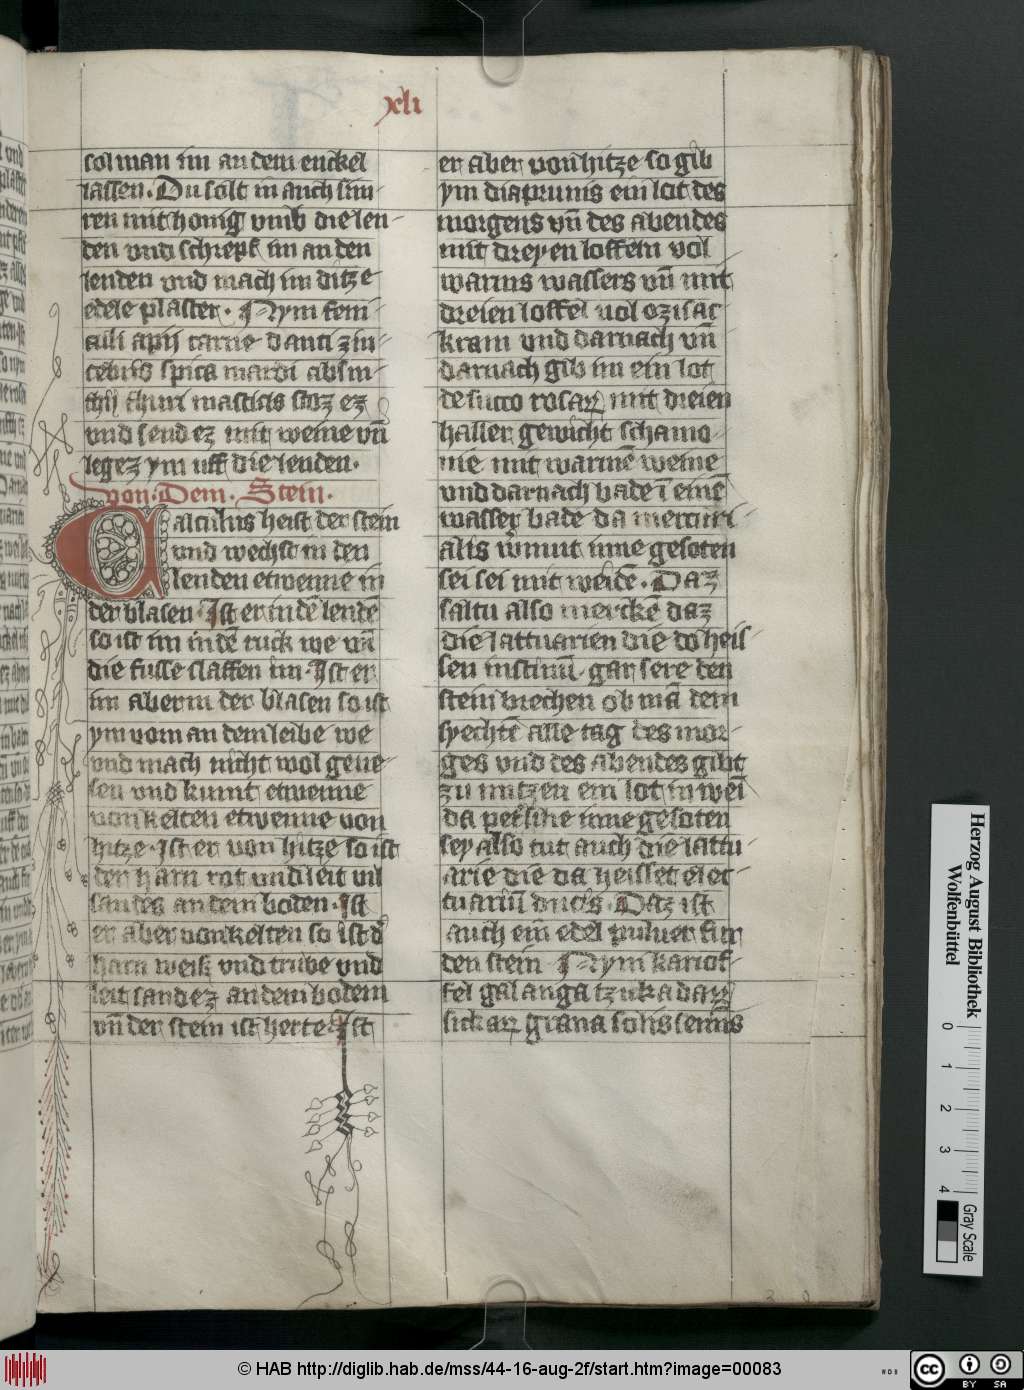 xli
sol man im an dem enckel
lassen. Du solt in auch smi-
ren mit honig vmb die len-
den vnd schrepf im an den
lenden vnd mach im ditz e
edele plaster. Nym feni-
culi apij carne danti zin-
cebris spica nardi absin-
thij thuri masticis stoz ez
vnd send ez mit weine vn̄
legez ym uff die lenden.
von. Dem. Stein.
Calculus heist der stein
vnd wechst in den
lenden etwenne in
der blasen. Ist er in dē lendē
so ist im in dē ruck we vn̄
die fusse slaffen im. Ist er
im aber in der blasen so ist
ym vorn an dem leibe we
vnd mach nicht wol gene-
sen vnd kumt etwenne
von kelten etwenne von
hitze. Ist er von hitze so ist
der harn rot vnd leit vil
sandes an dem boden. Ist
er aber von kelten so ist d'
harn weiß vnd trübe vnd
leit sandez an dem bodem
vn̄ der stein ist herte. Ist
er aber von hitze so gib
ym diaprunis ein lot des
morgens vn̄ des abendes
mit dreyen loffeln vol
warms wassers vn̄ mit
dreien loffel vol
kram vnd darnach vn̄
darnach gib im ein lot
de succo rosarꝝ mit dreien
haller gewicht schamo-
nie mit warmē weine
vnd darnach bade ī einē
wasser bade da mercuri-
alis inne gesoten
sei sei mit weidē. Daz
saltu also merckē daz
die lattuarien die do heis-
sen iustinū gar sere den
stein brechen ob mā dem
syechtē alle tag des mor-
ges vnd des abendes gibt
zu nutzen ein lot in weī
da petsilie inne gesoten
sey also tut auch die lattu-
arie die da heisset elec-
tuariū ducis. Daz ist
auch ein edel puluer für
den stein. Nym kariof-
fel galanga
grana solis

© HAB http://diglib.hab.de/mss/44-16-aug-2f/start.htm?image=00083
Herzog August Bibliothek
Wolfenbüttel
0 1 2 3 4
Gray Scale
BY SA